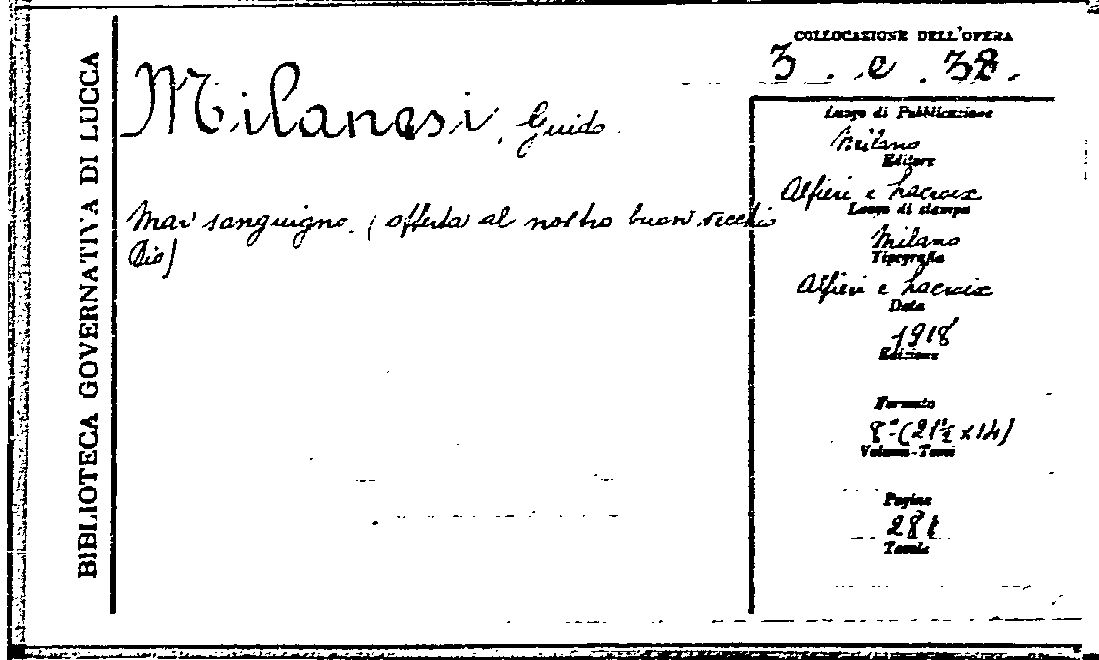 BIBLIOTECA GOVERNATIVA DI LUCCA
Milanesi, Guido.
Mar sanguigno. (offerta al nostro buon vecchio
Dio)
COLLOCAZIONE DELL'OPERA
3. e. 38.
Luogo di Pubblicazione
Milano
Editore
Alfieri e Lacroix
Luogo di stampa
Milano
Tipografia
Alfieri e Lacroix
Data
1918
Edizione
Formato
8° (21½ x 14)
Volumi-Tomi
Pagine
281
Tavole